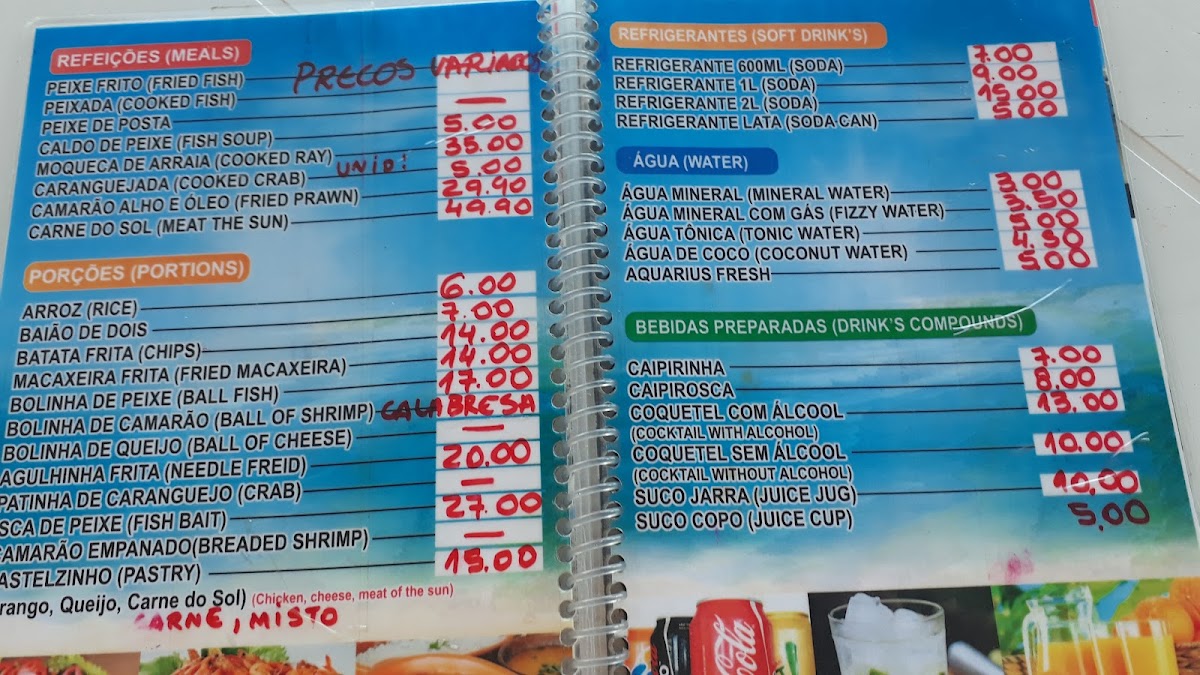 REFEIÇÕES (MEALS)
PEIXE FRITO (FRIED FISH) PREÇOS VARIADOS
PEIXADA (COOKED FISH)
PEIXE DE POSTA —
CALDO DE PEIXE (FISH SOUP) 5.00
MOQUECA DE ARRAIA (COOKED RAY) 35.00
CARANGUEJADA (COOKED CRAB) UNID! 5.00
CAMARÃO ALHO E ÓLEO (FRIED PRAWN) 29.90
CARNE DO SOL (MEAT THE SUN) 49.90
PORÇÕES (PORTIONS)
ARROZ (RICE) 6.00
BAIÃO DE DOIS 7.00
BATATA FRITA (CHIPS) 14.00
MACAXEIRA FRITA (FRIED MACAXEIRA) 14.00
BOLINHA DE PEIXE (BALL FISH) 17.00
BOLINHA DE CAMARÃO (BALL OF SHRIMP) CALABRESA
BOLINHA DE QUEIJO (BALL OF CHEESE) —
AGULHINHA FRITA (NEEDLE FREID) 20.00
PATINHA DE CARANGUEJO (CRAB) —
ISCA DE PEIXE (FISH BAIT) 27.00
CAMARÃO EMPANADO(BREADED SHRIMP) —
ASTELZINHO (PASTRY) 15.00
rango, Queijo, Carne do Sol) (Chicken, cheese, meat of the sun)
CARNE, MISTO
REFRIGERANTES (SOFT DRINK'S)
REFRIGERANTE 600ML (SODA) 7.00
REFRIGERANTE 1L (SODA) 9.00
REFRIGERANTE 2L (SODA) 15.00
REFRIGERANTE LATA (SODA CAN) 5.00
ÁGUA (WATER)
ÁGUA MINERAL (MINERAL WATER) 3.00
ÁGUA MINERAL COM GÁS (FIZZY WATER) 3.50
ÁGUA TÔNICA (TONIC WATER) 5.00
ÁGUA DE COCO (COCONUT WATER) 4.50
AQUARIUS FRESH 5.00
BEBIDAS PREPARADAS (DRINK'S COMPOUNDS)
CAIPIRINHA 7.00
CAIPIROSCA 8,00
COQUETEL COM ÁLCOOL 13,00
(COCKTAIL WITH ALCOHOL)
COQUETEL SEM ÁLCOOL 10.00
(COCKTAIL WITHOUT ALCOHOL)
SUCO JARRA (JUICE JUG) 10,00
SUCO COPO (JUICE CUP) 5,00